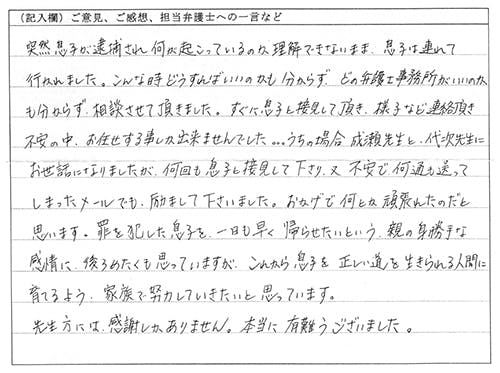 （記入欄）ご意見、ご感想、担当弁護士への一言など
突然息子が逮捕され何が起こっているのか理解できないまま、息子は連れて
行かれました。こんな時どうすればいいのかも分からず、どの弁護士事務所がいいのか
も分からず、相談させて頂きました。すぐに息子と接見して頂き、様子など連絡頂き
不安の中、お任せする事しか出来ませんでした…うちの場合 成瀬先生と、代次先生に
お世話になりましたが、何回も息子と接見して下さり、又 不安で、何通も送って
しまったメールでも、励まして下さいました。おかげで何とか頑張れたのだと
思います。罪を犯した息子を、一日も早く 帰らせたいという、親の身勝手な
感情に、後ろめたくも思っていますが、これから 息子を 正しい道を生きられる人間に
育てるよう、家族で努力していきたいと思っています。
先生方には、感謝しかありません。本当に 有難うございました。